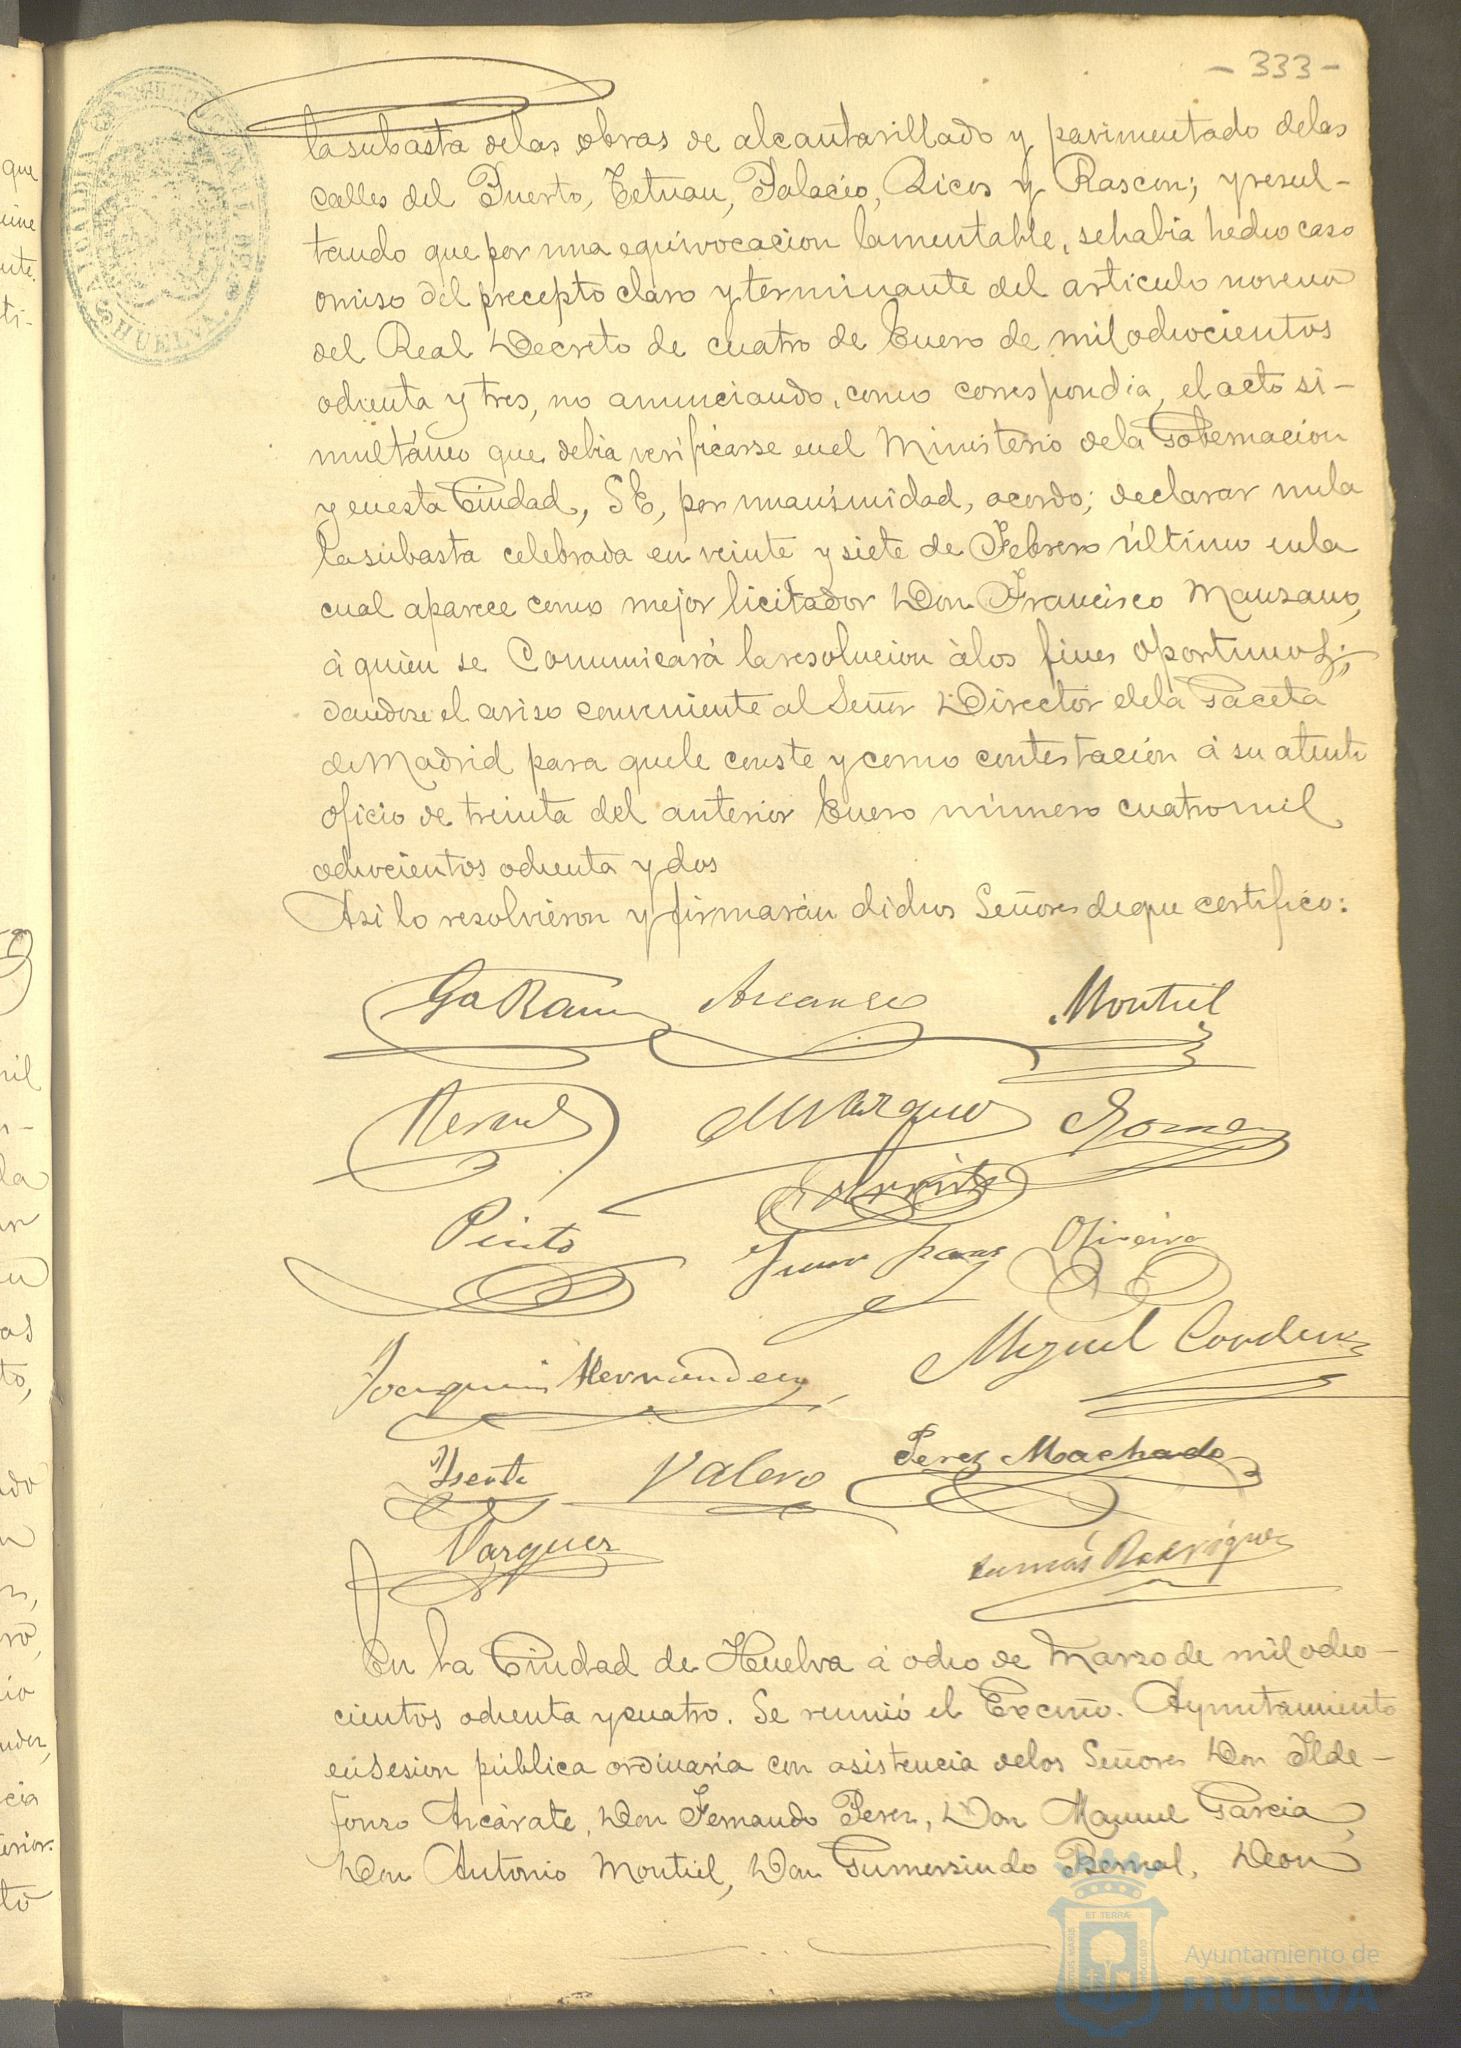 - 333 -
ALCALDIA CONSTITUCIONAL DE HUELVA
la subasta de las obras de alcantarillado y pavimentado de las
calles del Puerto, Tetuan, Palacio, Ricos y Rascon; y resul-
tando que por una equivocacion lamentable, se habia hecho caso
omiso del precepto claro y terminante del articulo noveno
del Real Decreto de cuatro de Enero de mil ochocientos
ochenta y tres, no anunciando, como correspondia, el acto si-
multáneo que debia verificarse en el Ministerio de la Gobernacion
y en esta Ciudad, SE, por unanimidad, acordo; declarar nula
la subasta celebrada en veinte y siete de Febrero último en la
cual aparece como mejor licitador Don Francisco Manzano,
á quien se Comunicará la resolucion á los fines oportunos;
dandose el aviso conveniente al Señor Director de la Gaceta
de Madrid para que le conste y como contestacion á su atento
oficio de treinta del anterior Enero número cuatro mil
ochocientos ochenta y dos
Asi lo resolvieron y firmarán dichos Señores de que certifico:
Montiel
Bernal Marquez
Pinto
Joaquin Hernandez
Miguel
Ysenti Valero Perez Machado
Vazquez
Tomás Rodriguez
En la Ciudad de Huelva á ocho de Marzo de mil ocho-
cientos ochenta y cuatro. Se reunió el Excmo. Ayuntamiento
en sesion pública ordinaria con asistencia de los Señores Don Ilde-
fonso Ancárate, Don Fernando Perez, Don Manuel Garcia,
Don Antonio Montiel, Don Gumersindo Bernal, Don
ET TERRÆ
Ayuntamiento de
HUELVA